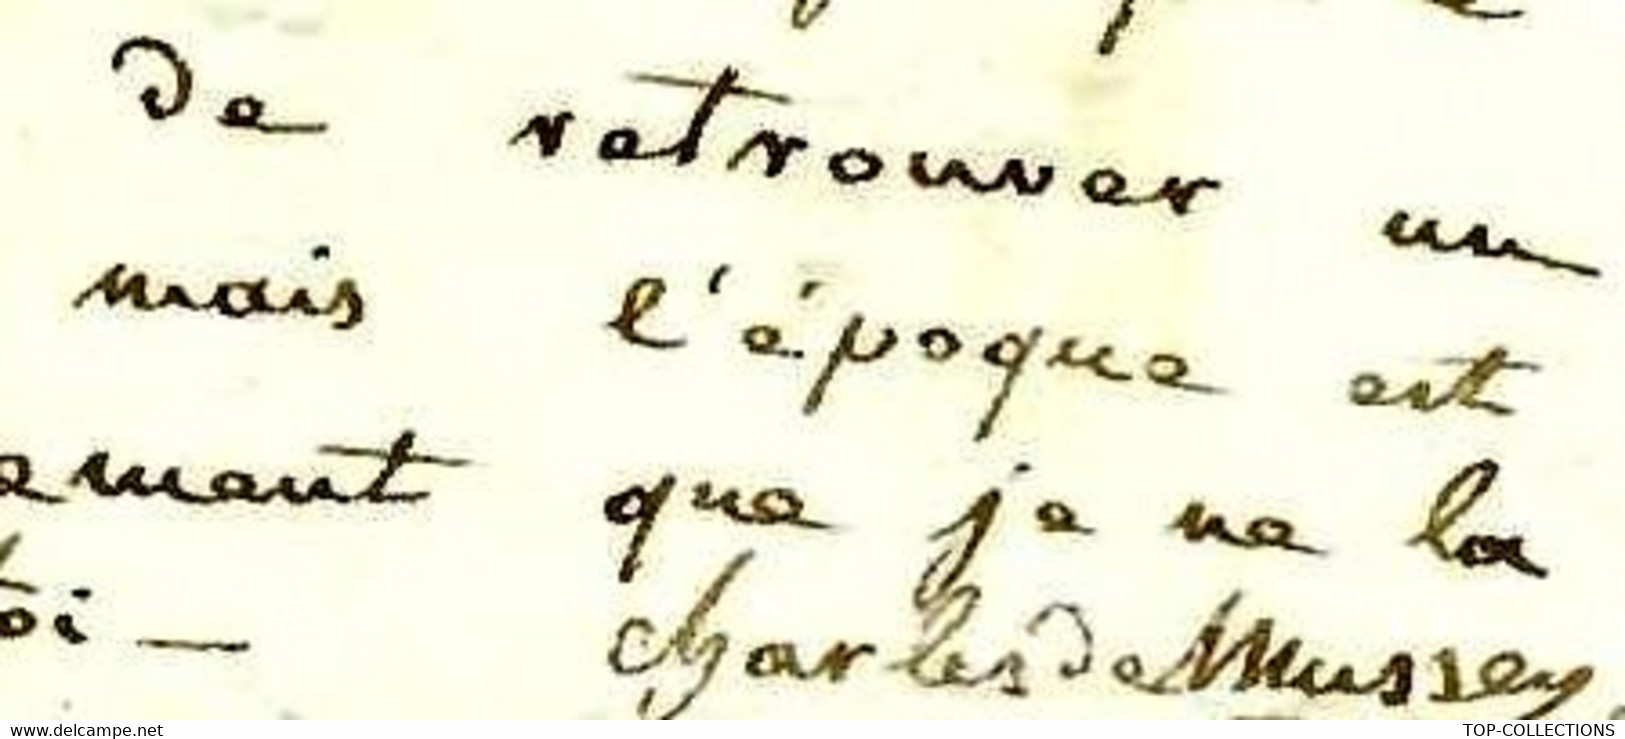 de retrouver un
mais l'époque est
ement que je ne la
toi —
Charles de Mussey
www.delcampe.net
TOP-COLLECTIONS